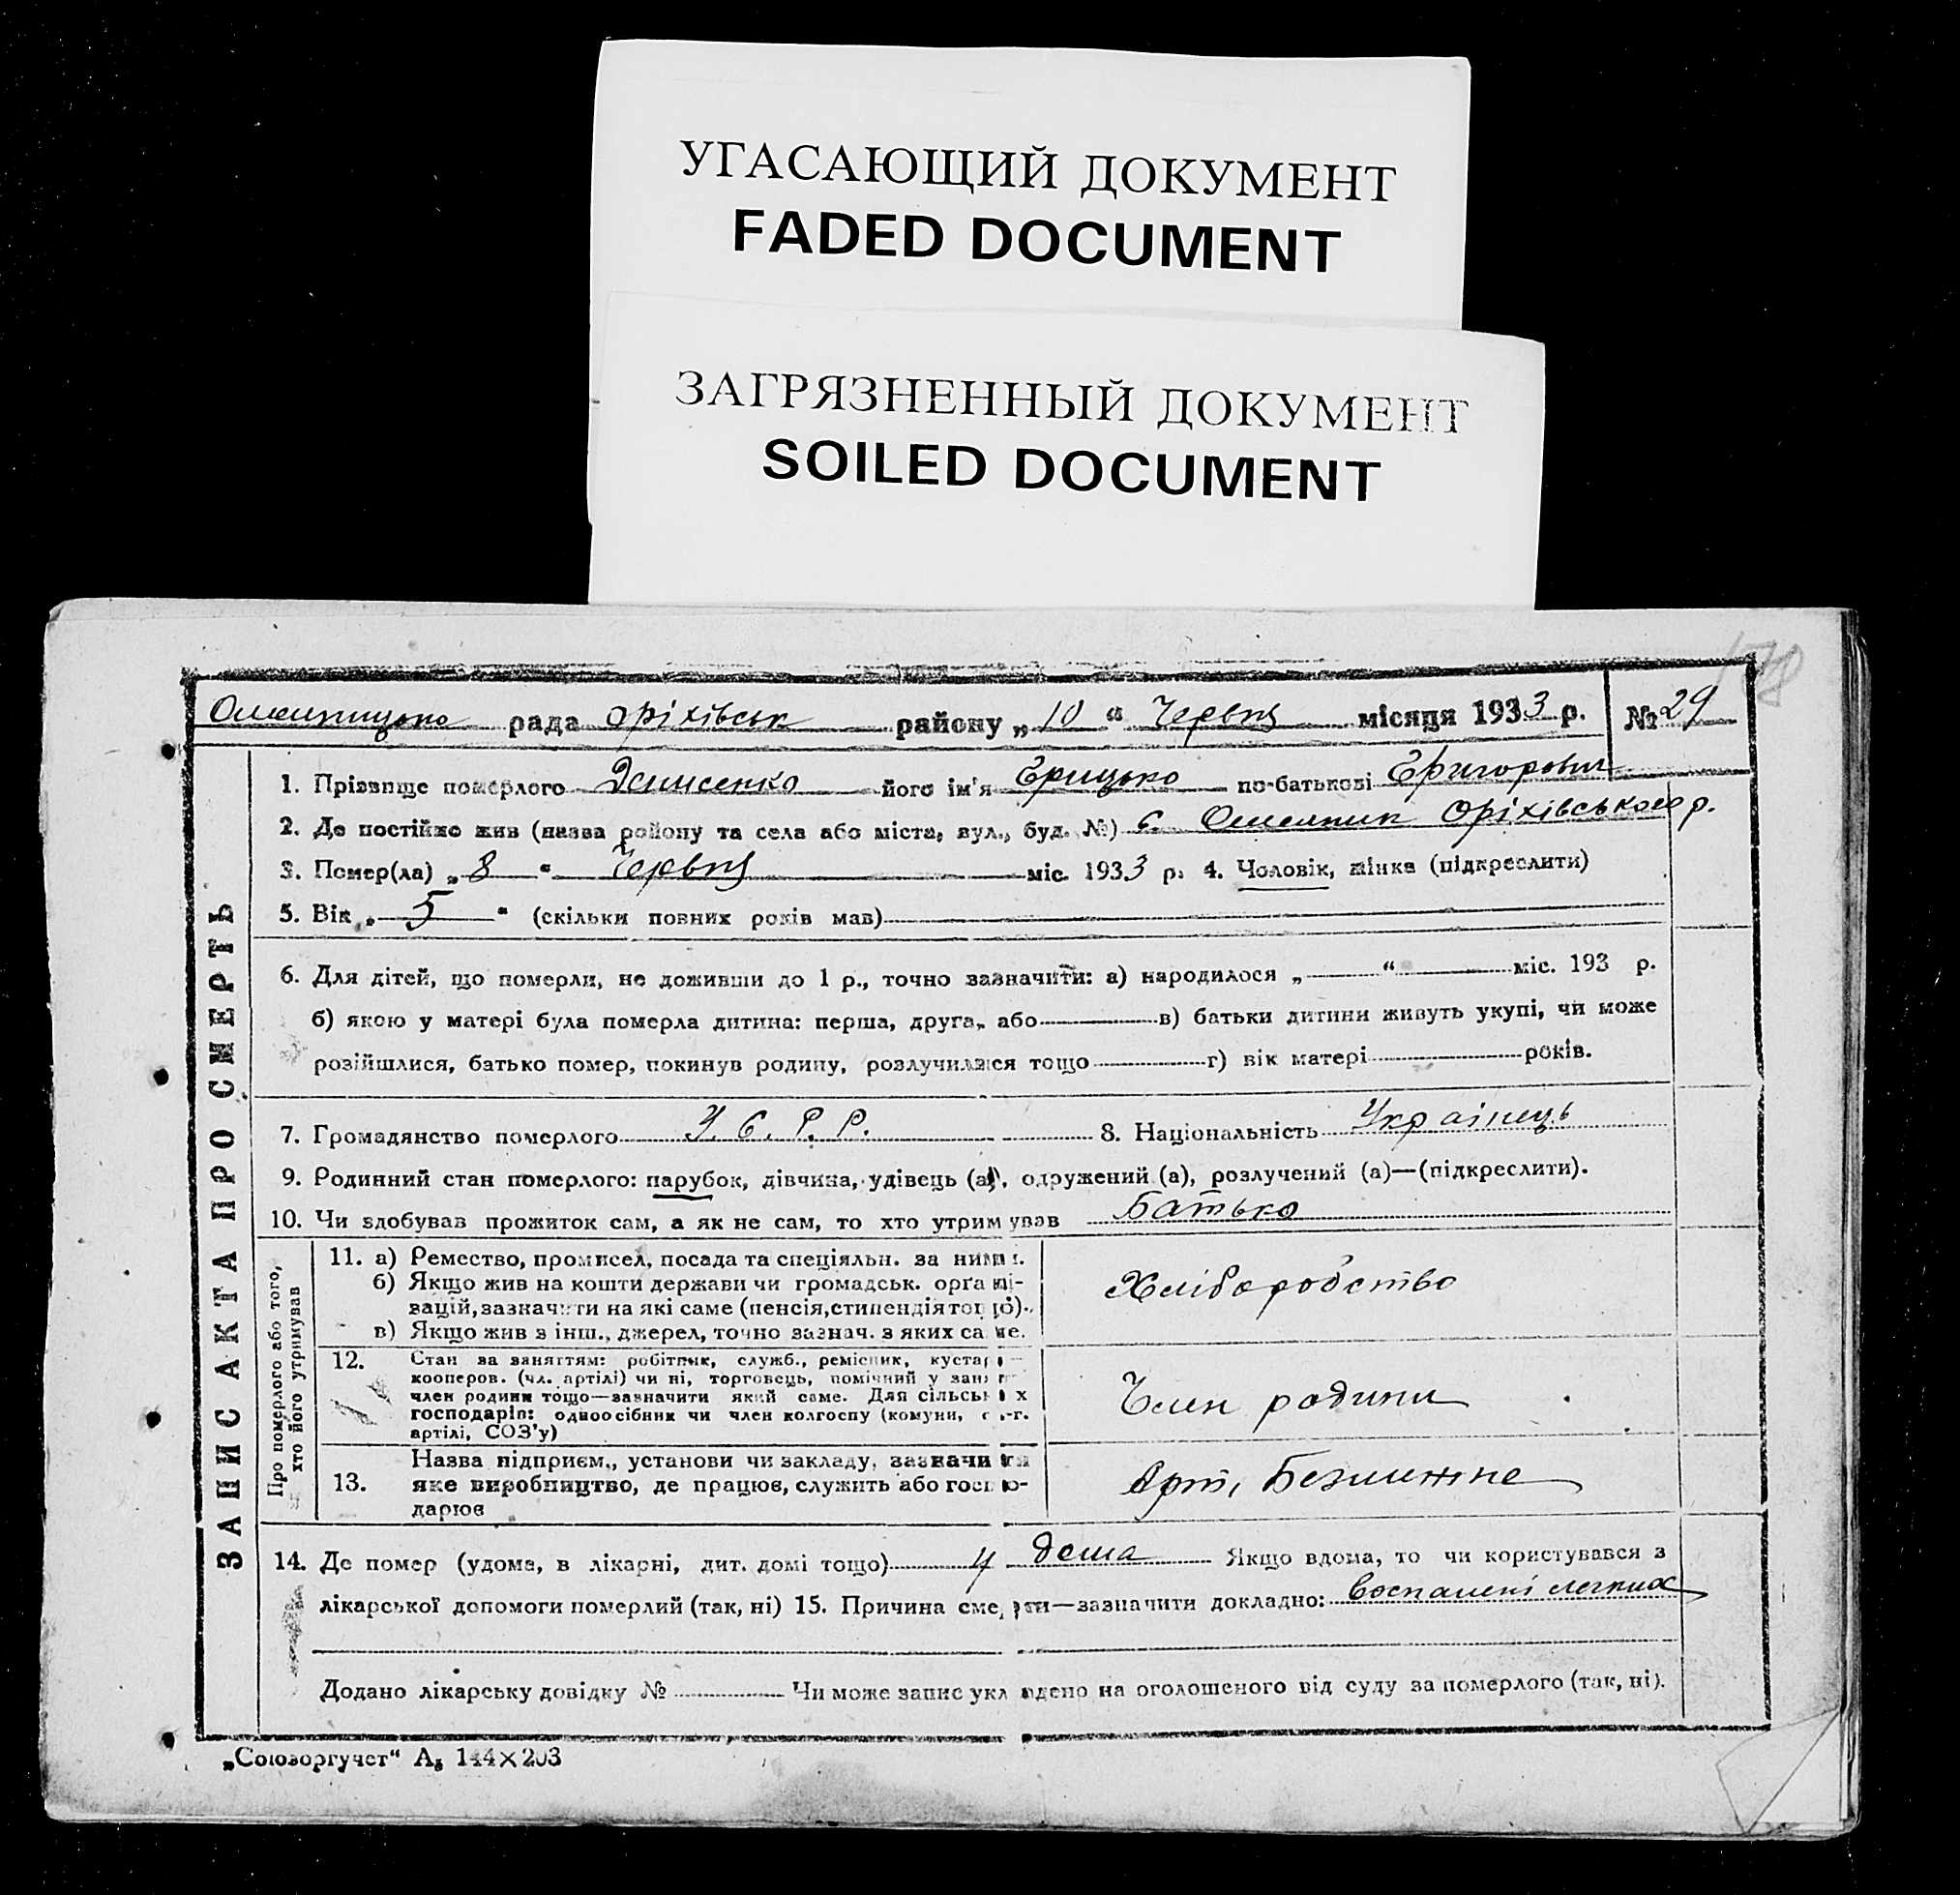 УГАСАЮЩИЙ ДОКУМЕНТ
FADED DOCUMENT
ЗАГРЯЗНЕННЫЙ ДОКУМЕНТ
SOILED DOCUMENT
рада Оріхівськ району „10“ Червня місяця 1933 р. № 29
ЗАПИС АКТА ПРО СМЕРТЬ
1. Прізвище померлого Денисенко його ім'я Грицько по-батькові Григорович
2. Де постійно жив (назва району та села або міста, вул., буд. №) с. Омельник Оріхівського р.
3. Помер(ла) „8“ Червня міс. 1933 р. 4. Чоловік, жінка (підкреслити)
5. Вік „5“ (скільки повних років мав)
6. Для дітей, що померли, не доживши до 1 р., точно зазначити: а) народилося „ “ міс. 193 р.
б) якою у матері була померла дитина: перша, друга, або в) батьки дитини живуть укупі, чи може
розійшлися, батько помер, покинув родину, розлучилися тощо г) вік матері років.
7. Громадянство померлого У. С. Р. Р. 8. Національність Українець
9. Родинний стан померлого: парубок, дівчина, удівець (а), одружений (а), розлучений (а)—(підкреслити).
10. Чи здобував прожиток сам, а як не сам, то хто утримував Батько
Про померлого або того,
хто його утримував
11. а) Ремество, промисел, посада та спеціяльн. за ними.
б) Якщо жив на кошти держави чи громадськ. орґані-
зацій, зазначити на які саме (пенсія, стипендія тощо).
в) Якщо жив з інш., джерел, точно зазнач. з яких саме.
Хліборобство
12. Стан за заняттям: робітник, служб., ремісник, кустар—
кооперов. (чл. артілі) чи ні, торговець, помічний у зан.
член родини тощо—зазначити який саме. Для сільських
господарів: одноосібник чи член колгоспу (комуни, с.-г.
артілі, СОЗ'у)
Член родини
13. Назва підприєм., установи чи закладу, зазначити
яке виробництво, де працює, служить або госпо-
дарює
Арт,
14. Де помер (удома, в лікарні, дит. домі тощо) у дома Якщо вдома, то чи користувався з
лікарської допомоги померлий (так, ні) 15. Причина смерти—зазначити докладно: Воспалені легких
Додано лікарську довідку № Чи може запис укладено на оголошеного від суду за померлого (так, ні).
„Союзоргучет“ А₅ 144×203